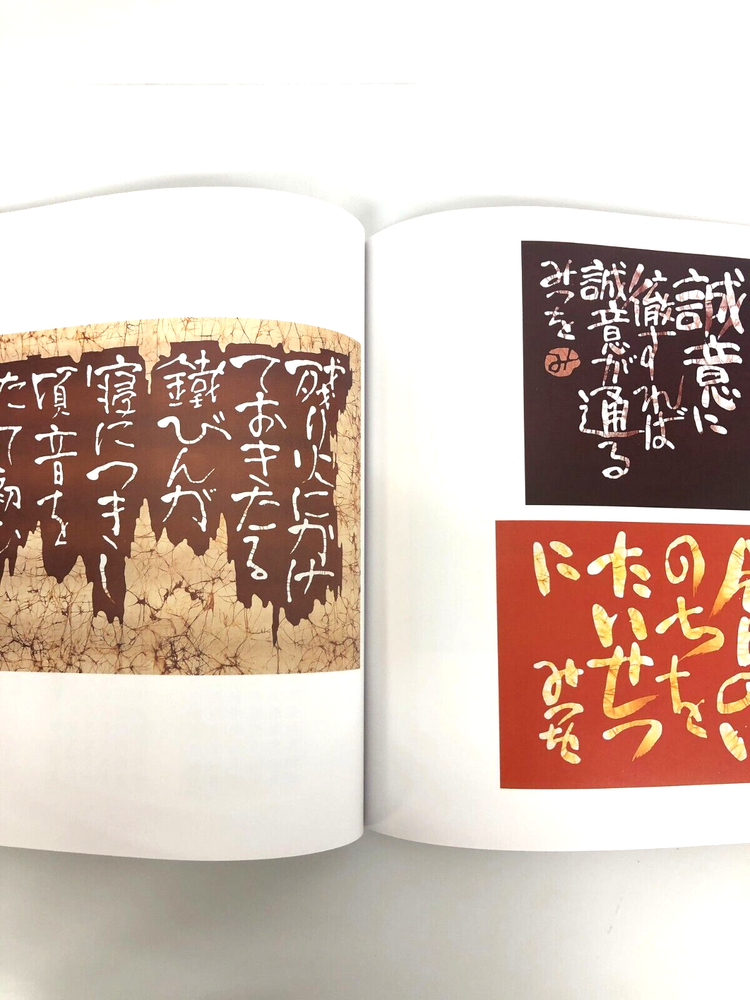 誠意に
徹すれば
誠意が通る
みつを
み
今日のい
のちを
たいせつ
に
みつを
残り火にかけ
ておきたる
鐵びんが
寝につきし
頃音を
たて